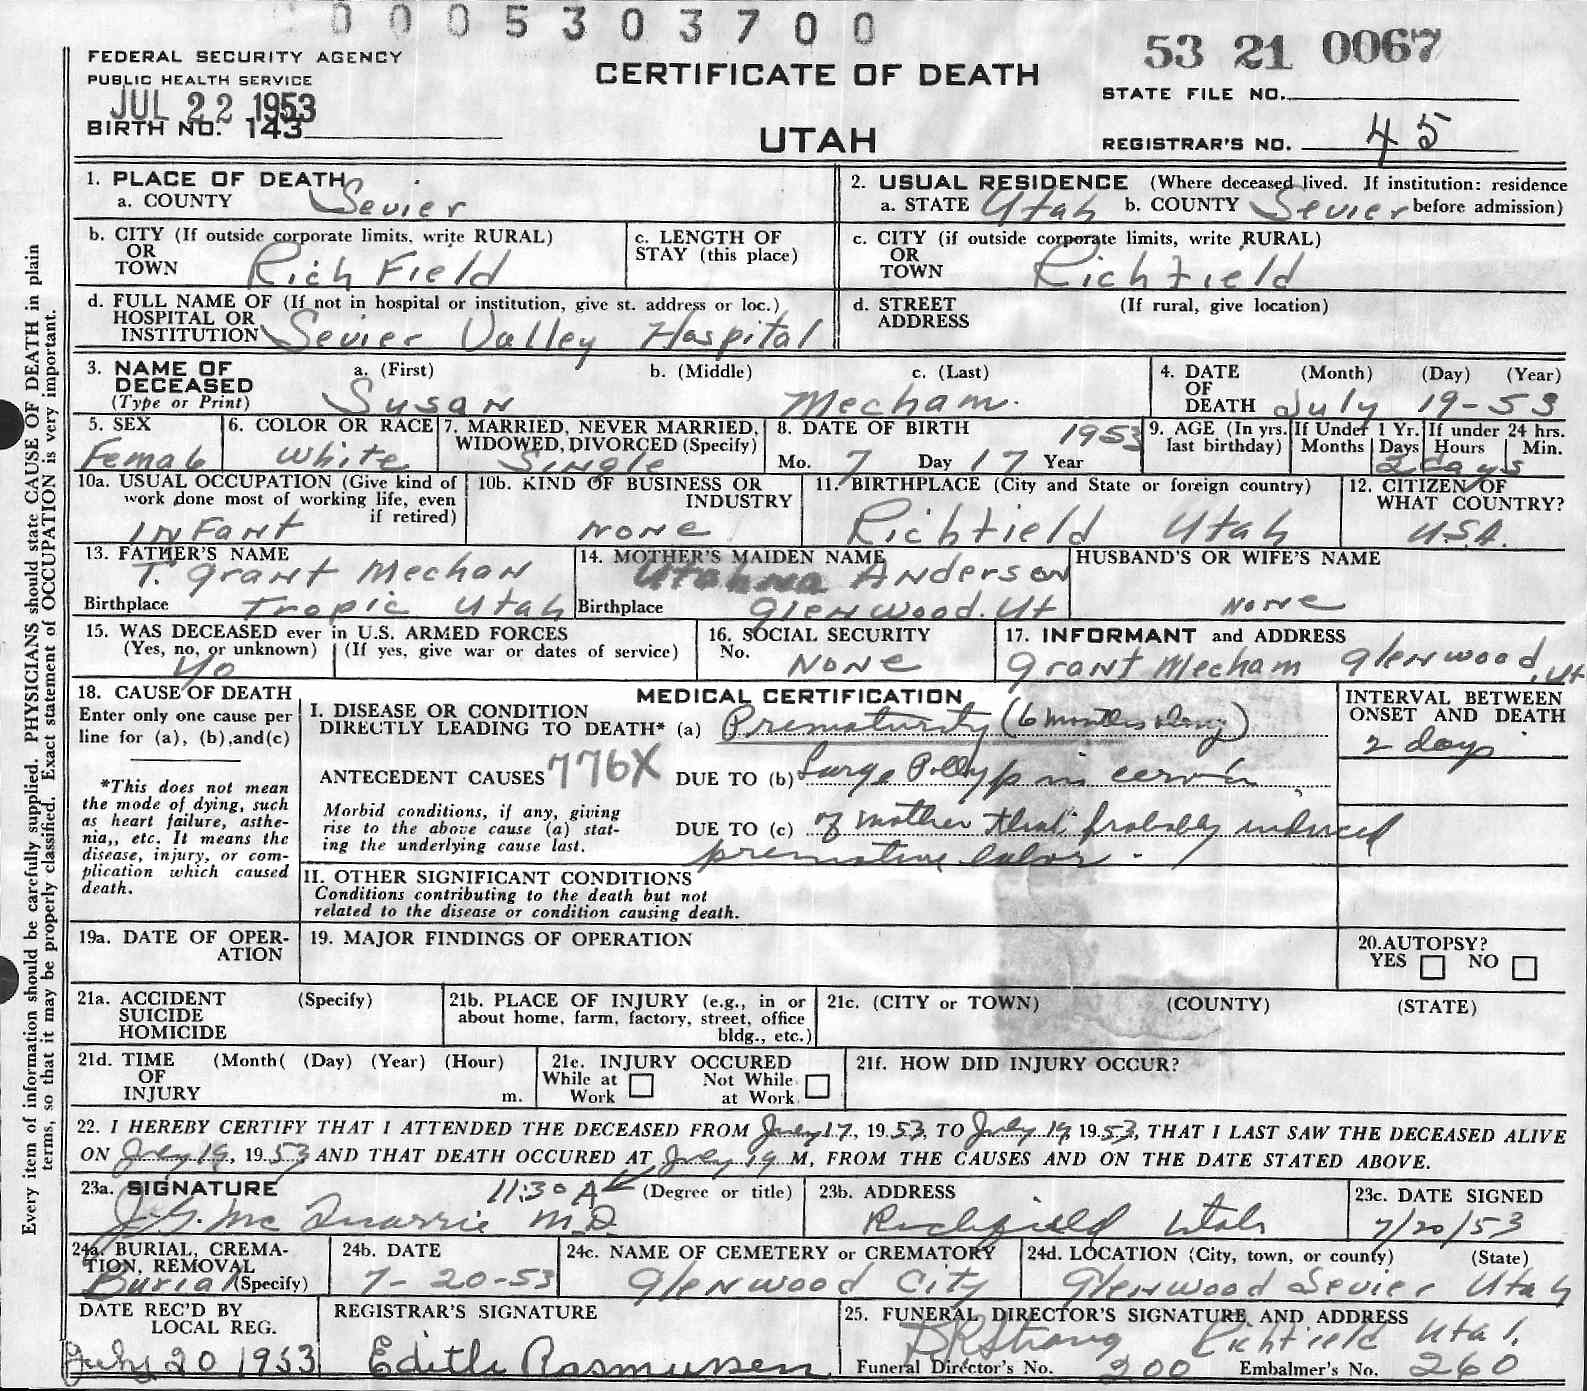 0 0 0 5 3 0 3 7 0 0
FEDERAL SECURITY AGENCY
PUBLIC HEALTH SERVICE
JUL 22 1953
BIRTH NO. 143
CERTIFICATE OF DEATH
UTAH
53 21 0067
STATE FILE NO.
REGISTRAR'S NO. 45
1. PLACE OF DEATH
a. COUNTY Sevier
2. USUAL RESIDENCE (Where deceased lived. If institution: residence before admission)
a. STATE Utah b. COUNTY Sevier
b. CITY (If outside corporate limits, write RURAL) OR TOWN RichField
c. LENGTH OF STAY (this place)
c. CITY (if outside corporate limits, write RURAL) OR TOWN Richfield
d. FULL NAME OF (If not in hospital or institution, give st. address or loc.)
HOSPITAL OR
INSTITUTION Sevier Valley Hospital
d. STREET ADDRESS (If rural, give location)
3. NAME OF DECEASED (Type or Print)
a. (First) b. (Middle) c. (Last)
Susan Mecham
4. DATE OF DEATH (Month) (Day) (Year)
July 19-53
5. SEX Female
6. COLOR OR RACE White
7. MARRIED, NEVER MARRIED, WIDOWED, DIVORCED (Specify) Single
8. DATE OF BIRTH 1953
Mo. 7 Day 17 Year
9. AGE (In yrs. last birthday) If Under 1 Yr. Months Days If under 24 hrs. Hours Min.
2 days
10a. USUAL OCCUPATION (Give kind of work done most of working life, even if retired)
INFant
10b. KIND OF BUSINESS OR INDUSTRY
NONE
11. BIRTHPLACE (City and State or foreign country)
Richfield Utah
12. CITIZEN OF WHAT COUNTRY?
U.S.A.
13. FATHER'S NAME
T. Grant Mechan
Birthplace Tropic Utah
14. MOTHER'S MAIDEN NAME
Utahna Anderson
Birthplace Glenwood. Ut
HUSBAND'S OR WIFE'S NAME
NONE
15. WAS DECEASED ever in U.S. ARMED FORCES
(Yes, no, or unknown) (If yes, give war or dates of service)
No
16. SOCIAL SECURITY No.
NONE
17. INFORMANT and ADDRESS
Grant Mecham Glenwood, Ut
18. CAUSE OF DEATH
Enter only one cause per line for (a), (b), and (c)
*This does not mean the mode of dying, such as heart failure, asthenia,, etc. It means the disease, injury, or complication which caused death.
MEDICAL CERTIFICATION
I. DISEASE OR CONDITION
DIRECTLY LEADING TO DEATH* (a) Prematurity (6 months along)
ANTECEDENT CAUSES 776X DUE TO (b) Large Pollyp in cervix
Morbid conditions, if any, giving rise to the above cause (a) stating the underlying cause last.
DUE TO (c) of mother that probably induced
premature labor.
INTERVAL BETWEEN ONSET AND DEATH
2 days
II. OTHER SIGNIFICANT CONDITIONS
Conditions contributing to the death but not related to the disease or condition causing death.
19a. DATE OF OPERATION
19. MAJOR FINDINGS OF OPERATION
20. AUTOPSY?
YES NO
21a. ACCIDENT SUICIDE HOMICIDE (Specify)
21b. PLACE OF INJURY (e.g., in or about home, farm, factory, street, office bldg., etc.)
21c. (CITY or TOWN) (COUNTY) (STATE)
21d. TIME OF INJURY (Month( (Day) (Year) (Hour) m.
21e. INJURY OCCURED
While at Work Not While at Work
21f. HOW DID INJURY OCCUR?
22. I HEREBY CERTIFY THAT I ATTENDED THE DECEASED FROM July 17, 1953, TO July 19, 1953, THAT I LAST SAW THE DECEASED ALIVE
ON July 19, 1953 AND THAT DEATH OCCURED AT July 19 M, FROM THE CAUSES AND ON THE DATE STATED ABOVE.
11:30 A
23a. SIGNATURE (Degree or title)
J.G. McQuarrie M.D.
23b. ADDRESS
Richfield Utah
23c. DATE SIGNED
7/20/53
24a. BURIAL, CREMATION, REMOVAL (Specify)
Burial
24b. DATE
7-20-53
24c. NAME OF CEMETERY or CREMATORY
Glenwood City
24d. LOCATION (City, town, or county) (State)
Glenwood Sevier Utah
DATE REC'D BY LOCAL REG.
July 20 1953
REGISTRAR'S SIGNATURE
Edith Rasmussen
25. FUNERAL DIRECTOR'S SIGNATURE AND ADDRESS
Strong Richfield Utah.
Funeral Director's No. 200 Embalmer's No. 260
Every item of information should be carefully supplied. PHYSICIANS should state CAUSE OF DEATH in plain
terms, so that it may be properly classified. Exact statement of OCCUPATION is very important.